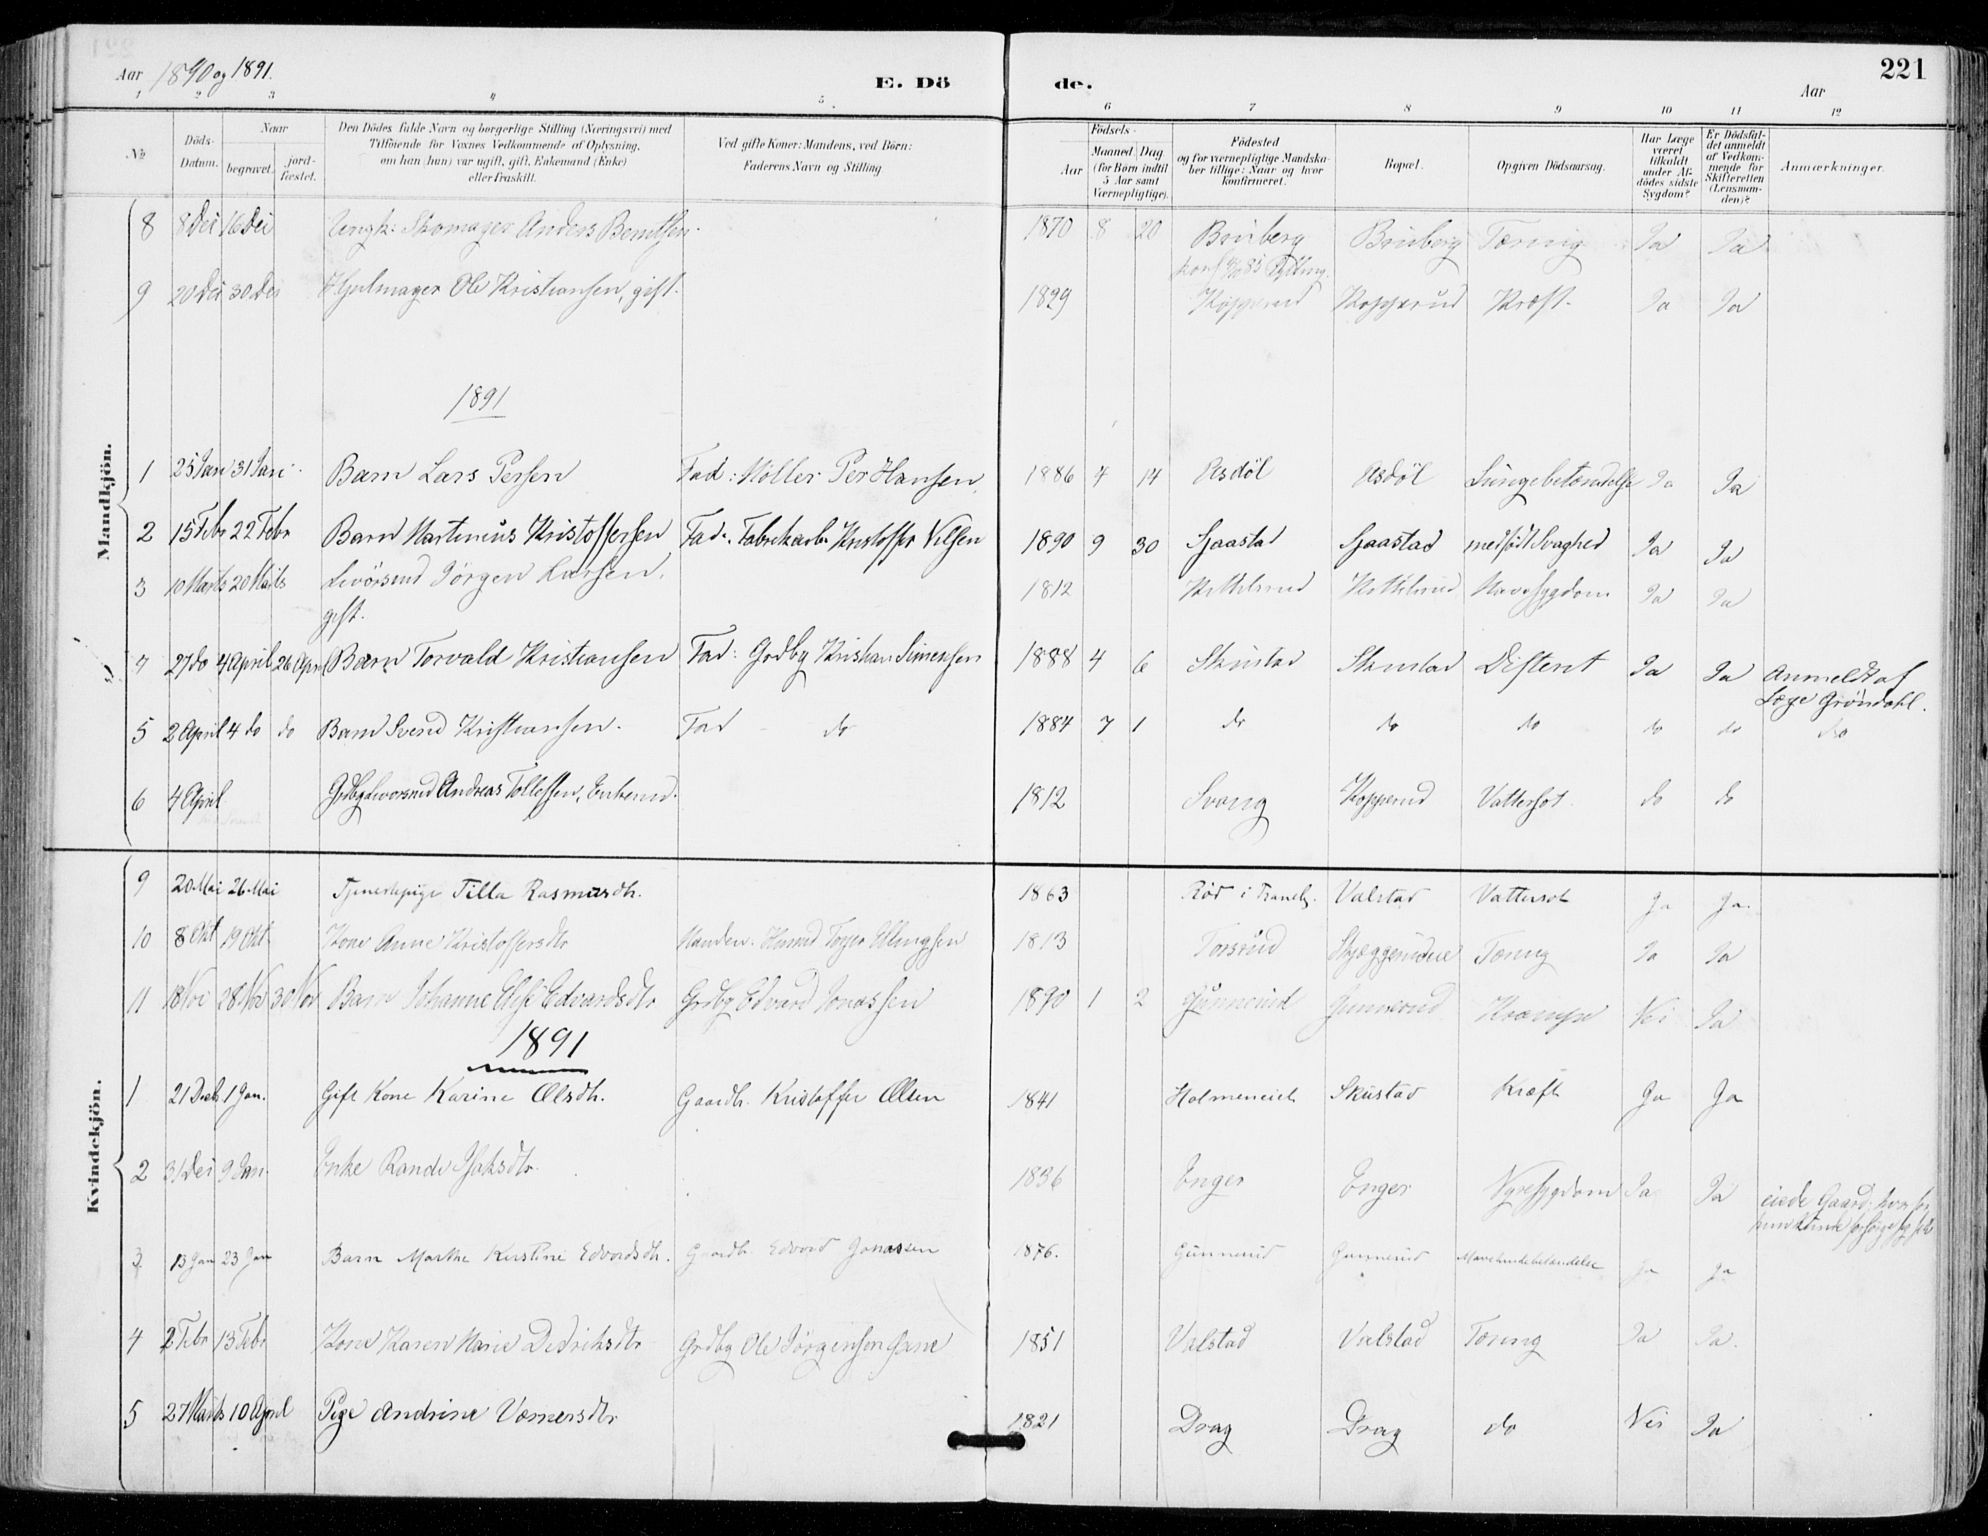 221
Aar 1890 og 1891.
E. Dö de.
Aar
1 2 3 4 5 6 7 8 9 10 11 12
No
Döds-Datum.
Naar
begravet.
jord-fæstet.
Den Dödes fulde Navn og borgerlige Stilling (Næringsvei) med
Tilföiende for Voxnes Vedkommende af Oplysning,
om han (hun) var ugift, gift, Enkemand (Enke)
eller fraskilt.
Ved gifte Koner: Mandens, ved Börn:
Faderens Navn og Stilling
Födsels-
Aar
Maaned Dag
(for Børn indtil
5 Aar samt
Værnepligtige).
Födested
og for værnepligtige Mandska-
ber tillige: Naar og hvor
konfirmeret.
Bopæl.
Opgiven Dödsaarsag.
Har Læge
været
tilkaldt
under Af-
dödes sidste
Sygdom?
Er Dödsfal-
det anmeldt
af Vedkom-
mende for
Skifteretten
(Lensman-
den)?
Anmærkninger.
Mandkjön.
8 8 Dec 16 Dec Ungk: Skomager Anders Berntsen 1870 8 20 Bruberg Bruberg Tæring Ja Ja
9 20 Dec 30 Dec Hjulmager Ole Kristiansen, gift. 1829 Kopperud Kopperud Kræft. Ja Ja
1891
1 25 Jan 31 Jan Barn Lars Persen Fad: Møller Per Hansen 1886 4 14 Asdøl Asdøl Lungebetændelse Ja Ja
2 15 Febr 22 Febr Barn Martinius Kristoffersen Fad: Fabrikarb. Kristoffer Nilsen 1890 9 30 Sjaastad Sjaastad medfødt Svaghed Ja Ja
3 10 Marts 20 Marts Levörsmd Jörgen Larsen, 1812 Kittilsrud Kittilsrud Mavesygdom Ja Ja
gift.
4 27 do 4 April 26 April Barn Torvald Kristiansen Fad: Grdbg Kristian Simensen 1888 4 6 Skustad Skustad Difterit Ja Ja Anmeldt af
Læge Gröndahl.
5 2 April 4 do do Barn Svend Kristiansen. Fad do 1884 7 1 do do do do do do
6 4 April Grdbg Levorsmd Andreas Tollefsen, Enkemd. 1812 Svang Kopperud Vattersot. do do
Kvindekjön.
9 20 Mai 26 Mai Tjenestepige Tilla Rasmusdtr. 1863 Rød i Valstad Vattersot Ja Ja.
10 8 Okt 19 Okt. Kone Anne Kristoffersdtr Manden: Husmd Ellingsen 1813 Torsrud Skjæggerudeie Tæring Ja Ja
11 18 Nov 28 Nov 30 Nov Barn Johanne Elise Edvardsdtr Grdbg Edvard Jonassen 1890 1 2 Gunnerud Gunnerud Krampe Nei Ja
1891
1 21 Decb. 1 Jan. Gift Kone Karine Olsdtr. Gaardb. Kristoffer Olsen 1841 Holmeneie Skustad Kræft Ja Ja
2 31 Dec 9 Jan. Enke Randi Isaksdtr. 1836 Enger Enger Nyresygdom Ja Ja eiede Gaard
3 13 Jan 23 Jan Barn Marthe Kirstine Edvardsdtr. Gaardb. Edvard Jonassen 1876. Gunnerud Gunnerud Mavehindebetændelse Ja Ja
4 2 Febr 13 Febr Kone Karen Marie Dedriksdtr Grdbg Ole Jörgensen 1851 Valstad Valstad Tæring Ja Ja.
5 27 Marts 10 April Pige Andrine Vernersdtr 1821 Drag Drag do Nei Ja